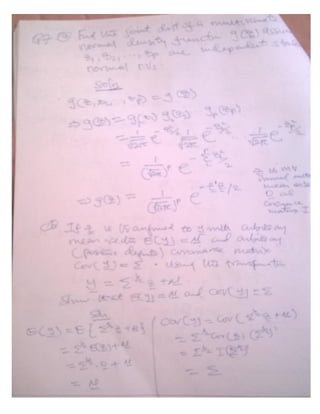 Q7 (a) Find the joint dist of a multivariate
normal density function g(z) assume
z₁, z₂, ..., zp are independent std
normal r.v.s.
Soln
g(z₁, z₂, ..., zp) = g(z)
⇒ g(z) = g(z₁) g(z₂) ... gp(zp)
= 1/√2π e^(-z₁²/2) 1/√2π e^(-z₂²/2) ... 1/√2π e^(-zp²/2)
= 1/(√2π)^p e^(-Σz²/2)
⇒ g(z) = 1/(√2π)^p e^(-z'z/2)
normal
mean
0 and
covariance
matrix I
(b) If z is transformed to y with arbitrary
mean vector E(y) = μ and arbitrary
(positive definite) covariance matrix
Cov(y) = Σ. Using the transformation
y = Σ^½ z + μ
Show that E(y) = μ and cov(y) = Σ
Soln
E(y) = E[Σ^½ z + μ]
= Σ^½ E(z) + μ
= Σ^½ · 0 + μ
= μ
Cov(y) = Cov(Σ^½ z + μ)
= Σ^½ Cov(z) (Σ^½)'
= Σ^½ I (Σ^½)'
= Σ